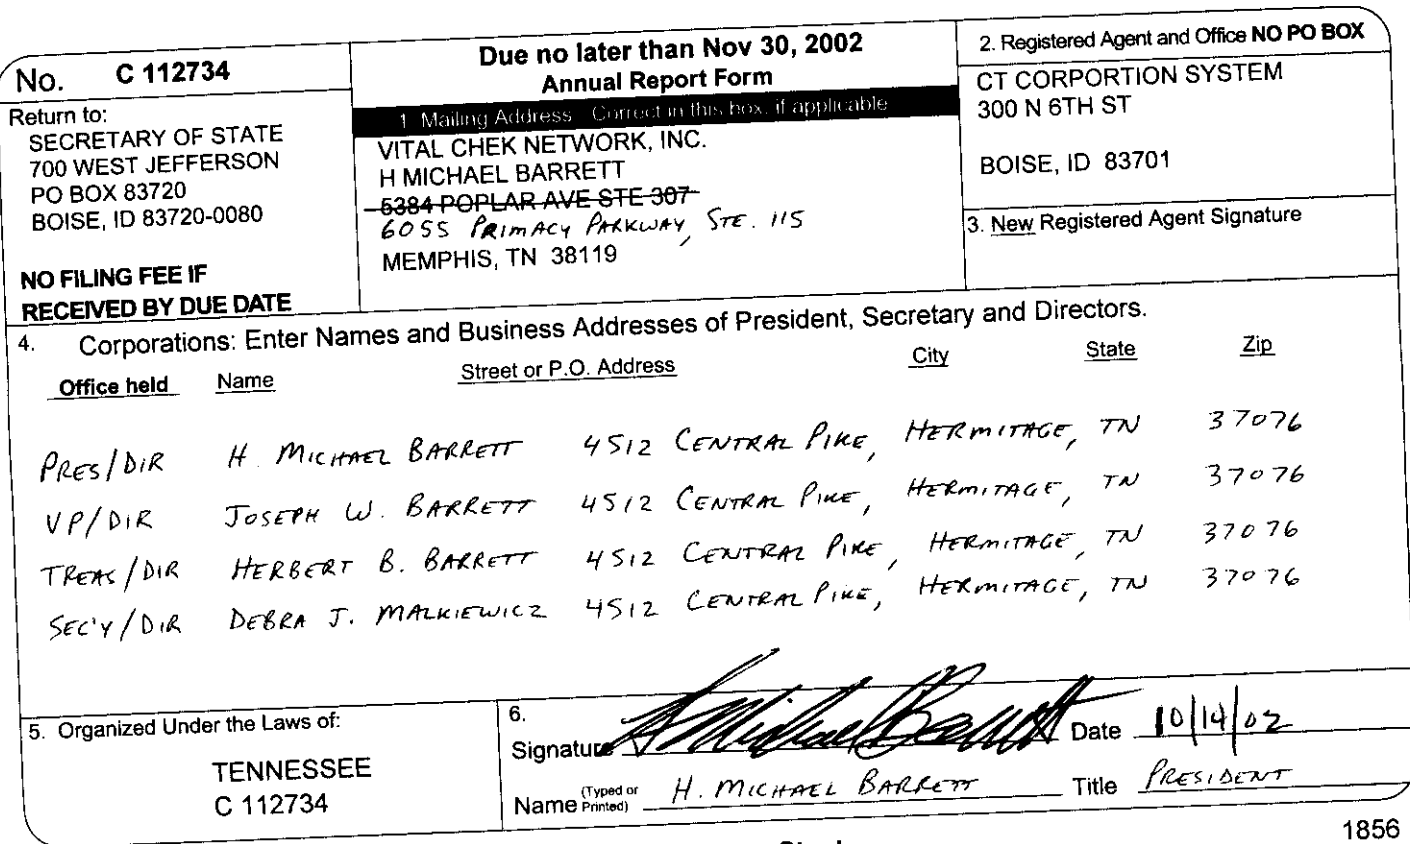 No. C 112734
Return to:
SECRETARY OF STATE
700 WEST JEFFERSON
PO BOX 83720
BOISE, ID 83720-0080
NO FILING FEE IF
RECEIVED BY DUE DATE
Due no later than Nov 30, 2002
Annual Report Form
1. Mailing Address Correct in this box, if applicable
VITAL CHEK NETWORK, INC.
H MICHAEL BARRETT
5384 POPLAR AVE STE 307
6055 PRIMACY PARKWAY, STE. 115
MEMPHIS, TN 38119
2. Registered Agent and Office NO PO BOX
CT CORPORTION SYSTEM
300 N 6TH ST
BOISE, ID 83701
3. New Registered Agent Signature
4. Corporations: Enter Names and Business Addresses of President, Secretary and Directors.
Office held Name Street or P.O. Address City State Zip
PRES/DIR H. MICHAEL BARRETT 4512 CENTRAL PIKE, HERMITAGE, TN 37076
VP/DIR JOSEPH W. BARRETT 4512 CENTRAL PIKE, HERMITAGE, TN 37076
TREAS/DIR HERBERT B. BARRETT 4512 CENTRAL PIKE, HERMITAGE, TN 37076
SEC'Y/DIR DEBRA J. MALKIEWICZ 4512 CENTRAL PIKE, HERMITAGE, TN 37076
5. Organized Under the Laws of:
TENNESSEE
C 112734
6.
Signature H Michael Barrett Date 10/14/02
Name (Typed or Printed) H. MICHAEL BARRETT Title PRESIDENT
1856